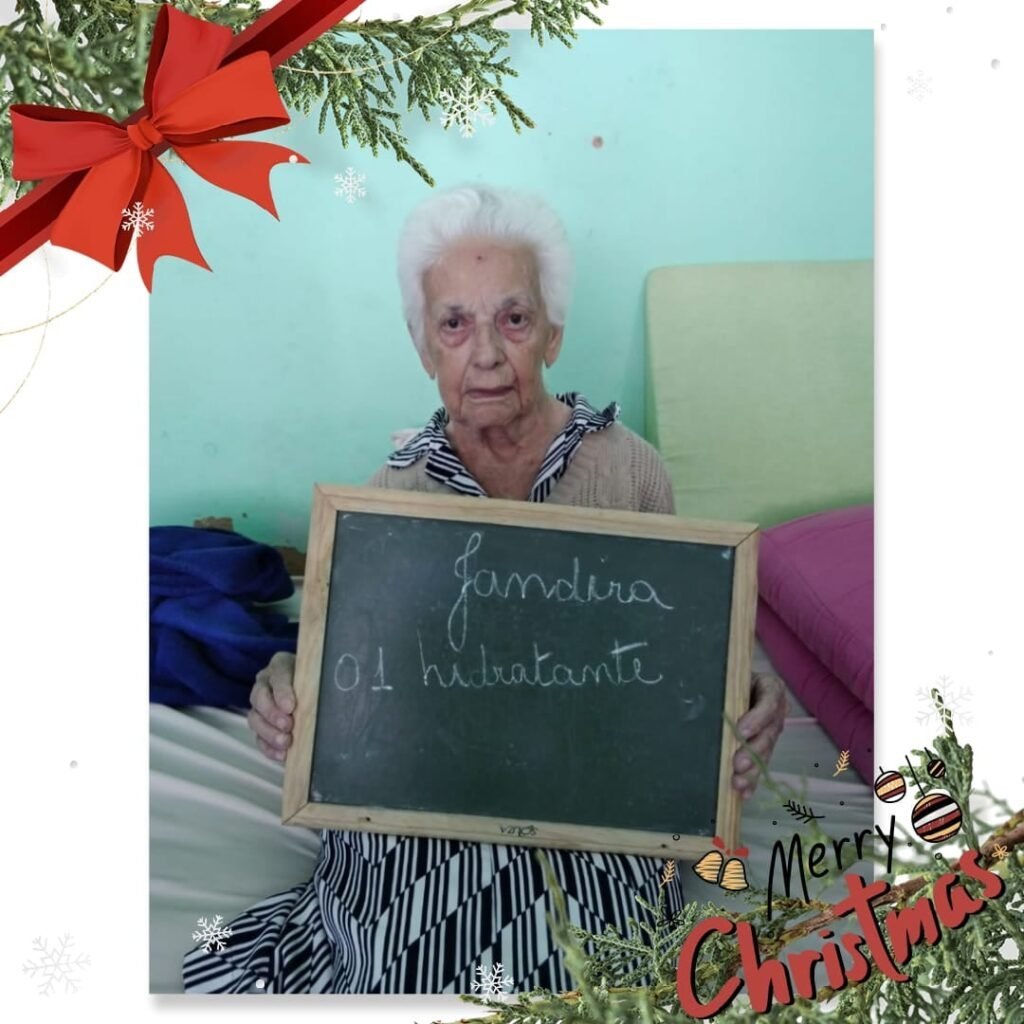 Jandira
01 hidratante
Merry
Christmas